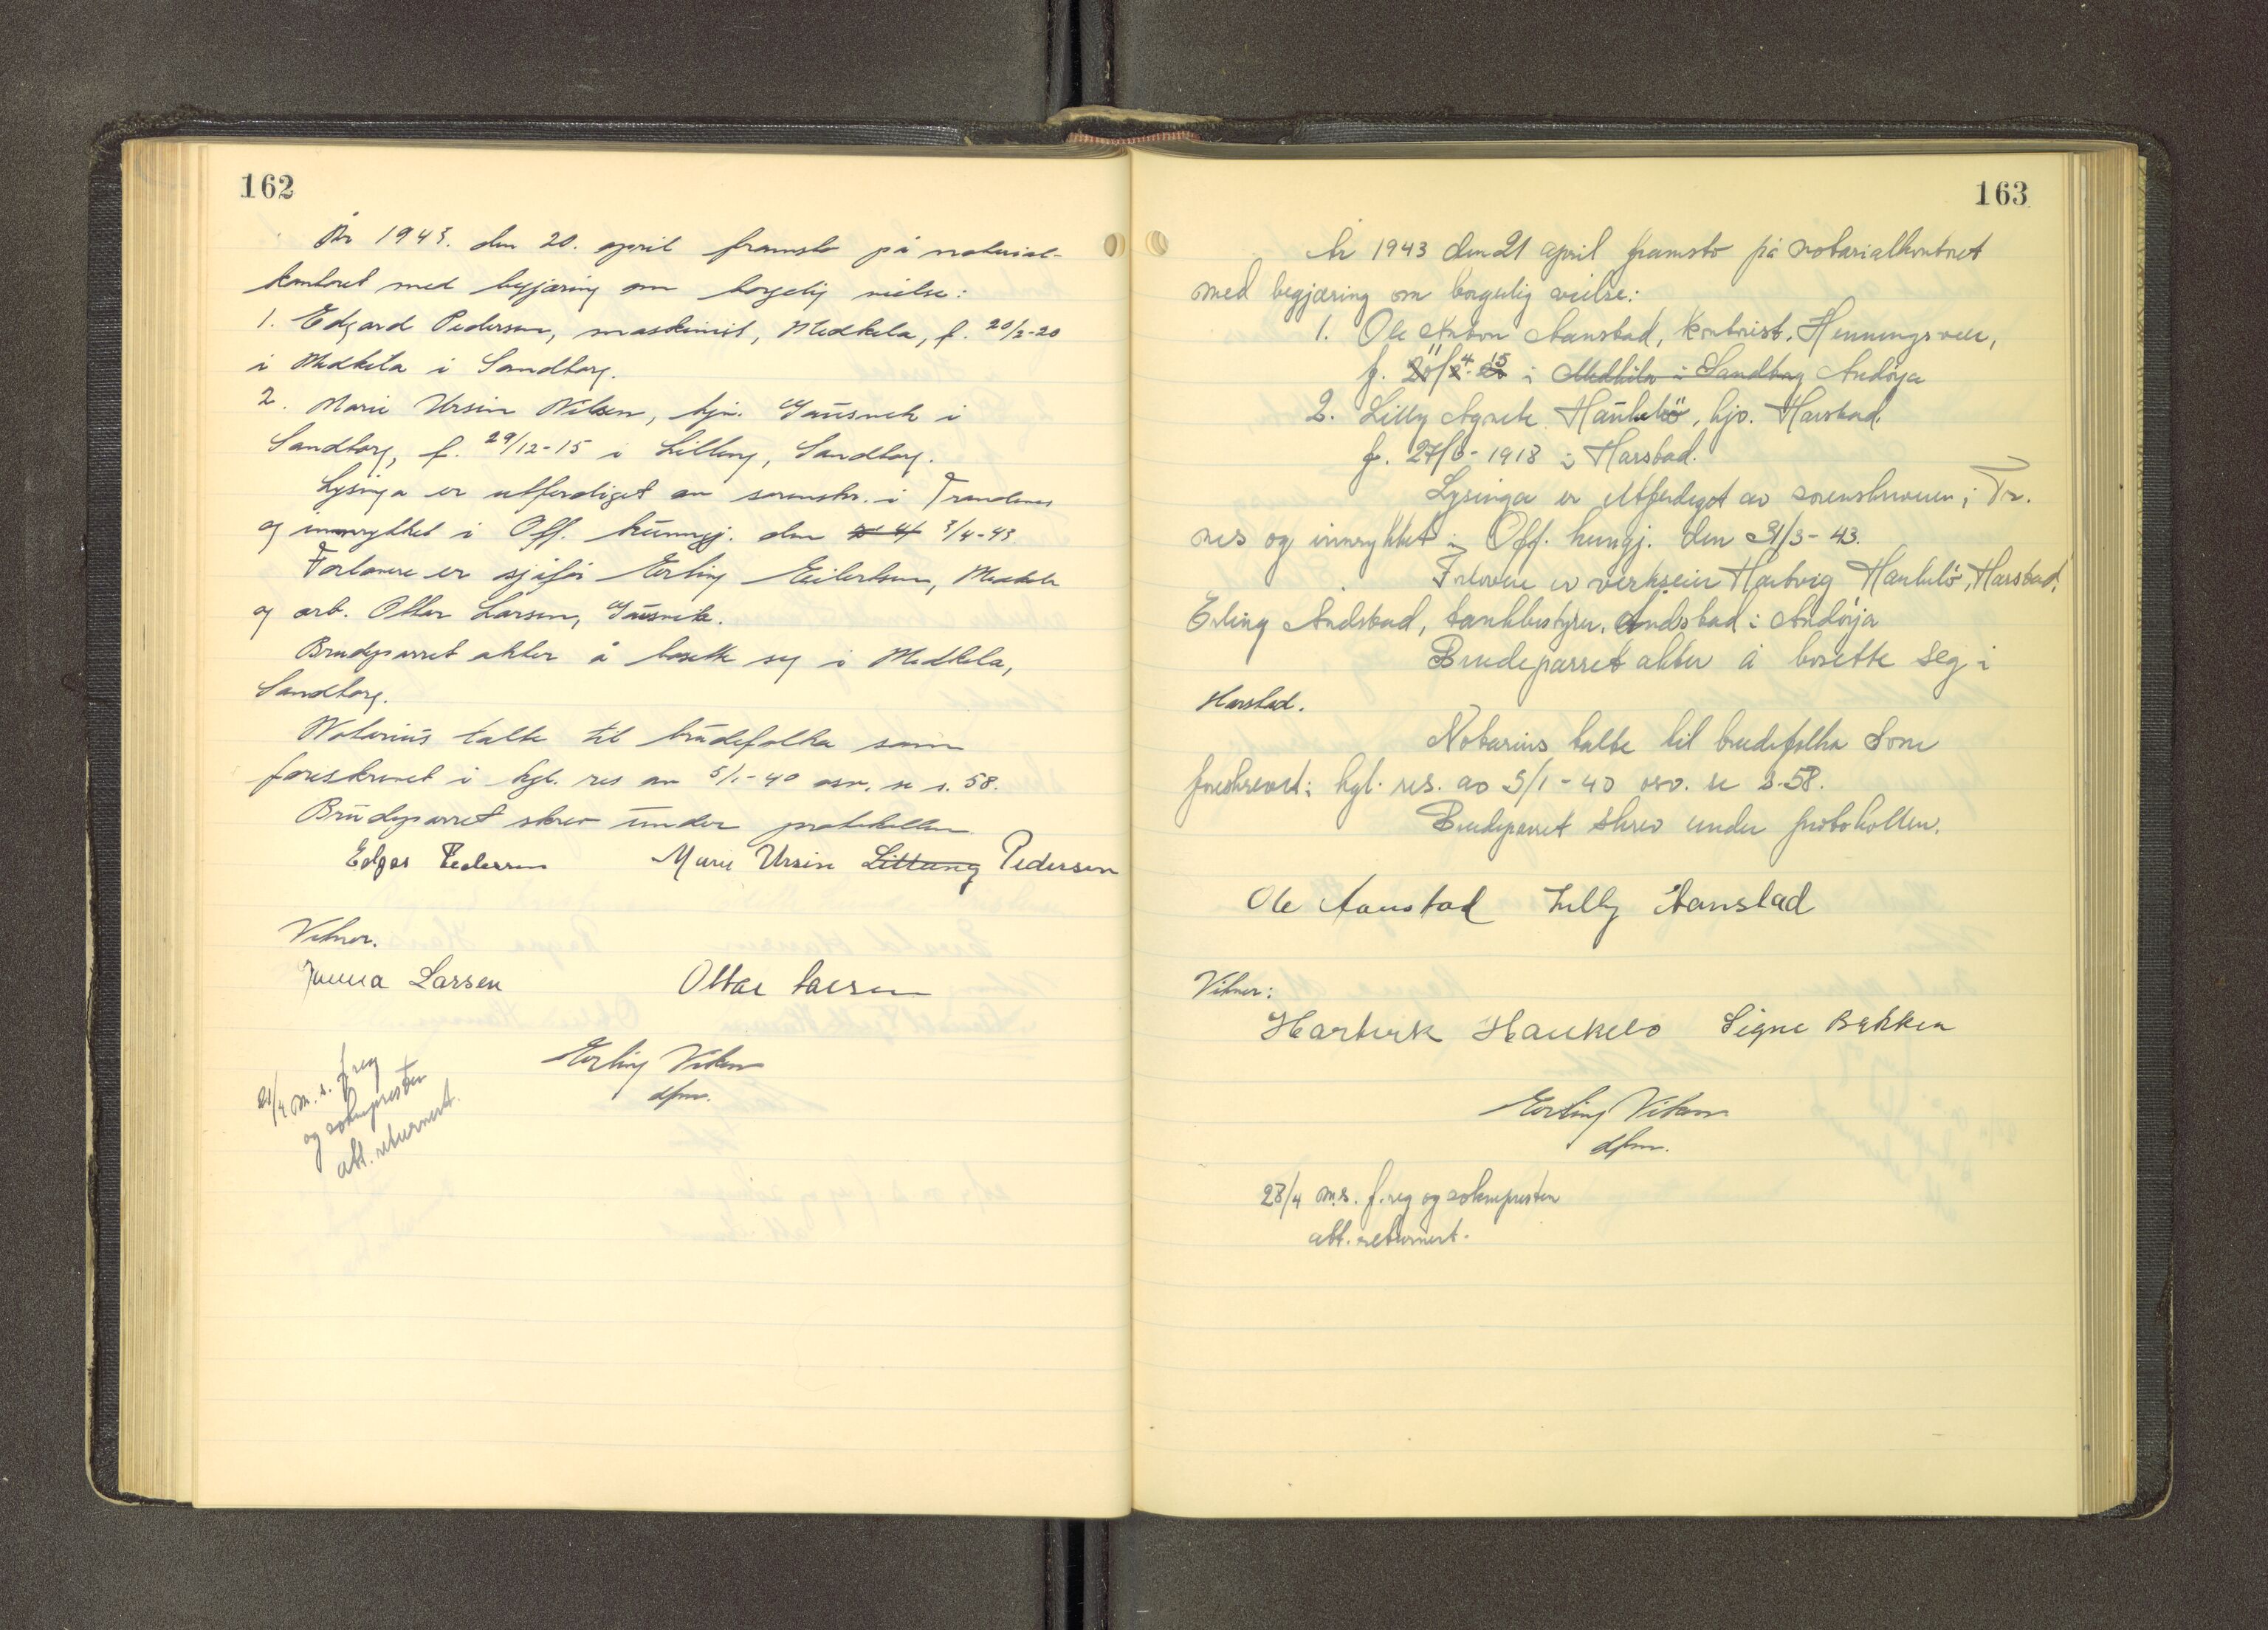 162
År 1943. den 20. april framsto på notarial-
kontoret med begjæring om borgelig vielse:
1. Edgard Pedersen, maskinist, Medkila, f. 20/2-20
i Medkila i Sandtorg.
2. Marie Ursin Nilsen, hjv. Gausvik i
Sandtorg, f. 29/12-15 i Lilleng, Sandtorg.
Lysinga er utferdiget av sorenskr. i Trondenes
og innrykket i Off. kunngj. den 3/4-43.
Forlovere er sjåfør Erling Eilertsen, Medkila
og arb. Ottar Larsen, Gausvik.
Brudeparret akter å bosette seg i Medkila,
Sandtorg.
Notarius talte til brudefolka som
foreskrevet i kgl. res av 5/1-40 osv. se s. 58.
Brudeparret skrev under protokollen.
Edgar Pedersen Marie Ursin Littung Pedersen
Vitner.
Larsen Ottar Larsen
Erling Viken
dfm.
21/4 m. s. f reg
og soknepresten
att. returnert.
163
År 1943 den 21 april framsto på notarialkontoret
med begjæring om borgerlig vielse:
1. Ole Anton Aanstad, kontorist, Henningsvær,
f. 11/4-15 i Medkila i Sandtorg Andøja
2. Lilly Agnete Haukebø, hjv. Harstad.
f. 27/6-1918 i Harstad.
Lysinga er utferdiget av sorenskriveren i Tr.
nes og innrykket i Off. kungj. den 31/3-43.
Forlovere er verkseier Hartvig Haukebø, Harstad,
Erling Andstad, tankbestyrer, Andstad i Andøja
Brudeparret akter å bosette seg i
Harstad.
Notarius talte til brudefolka som
foreskrevet i kgl. res. av 5/1-40 osv. se s. 58.
Brudeparret skrev under protokollen.
Ole Aanstad Lilly Aanstad
Vitner:
Haukebo Signe Bakken
Erling Viken
dfm.
28/4 m.s. f. reg og soknepresten
att. returnert.